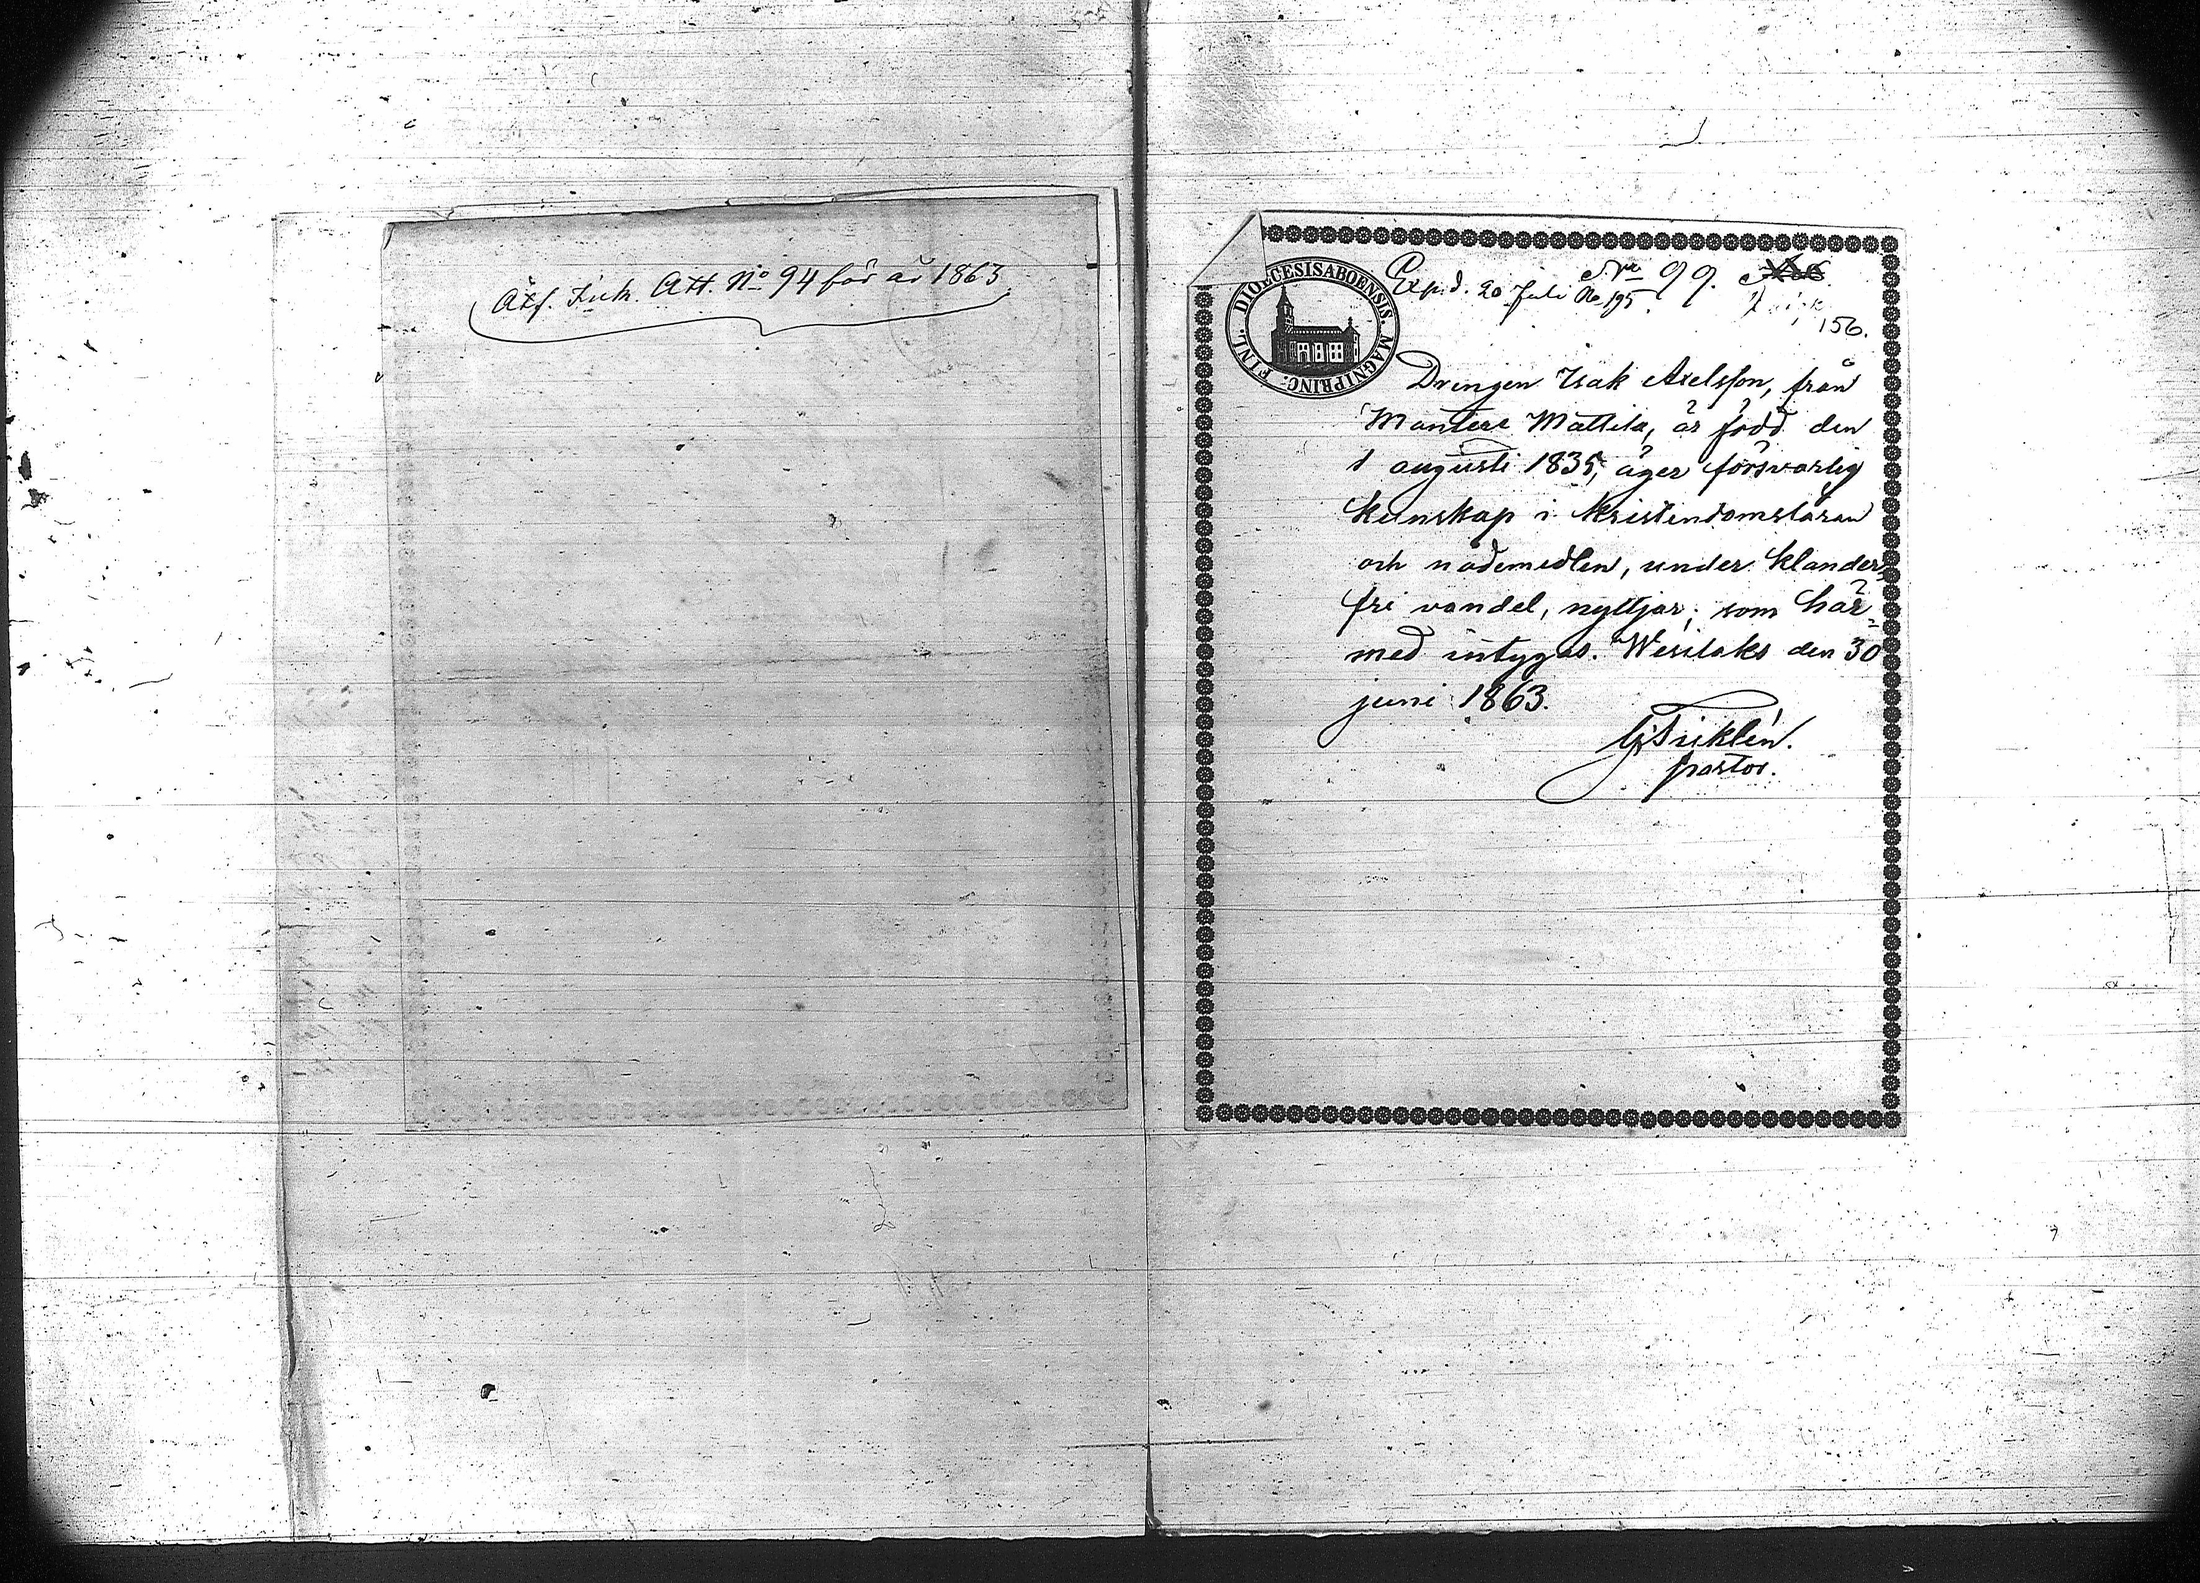 Äfs. Fink. Att. No 94 för år 1863
DIOECESIS ABOENSIS. MAGNI PRINC: FINL.
Nro 99.
Exp.d. 20 Juli No 195.
156.
Drengen Isak Axelsson, från
Mantere Mattila, är född den
1 augusti 1835, äger försvarlig
kunskap i kristendomsläran
och nådemedlen, under klander-
fri vandel, nyttjar; som här-
med intygas. Wesilaks den 30
juni 1863.
pastor.